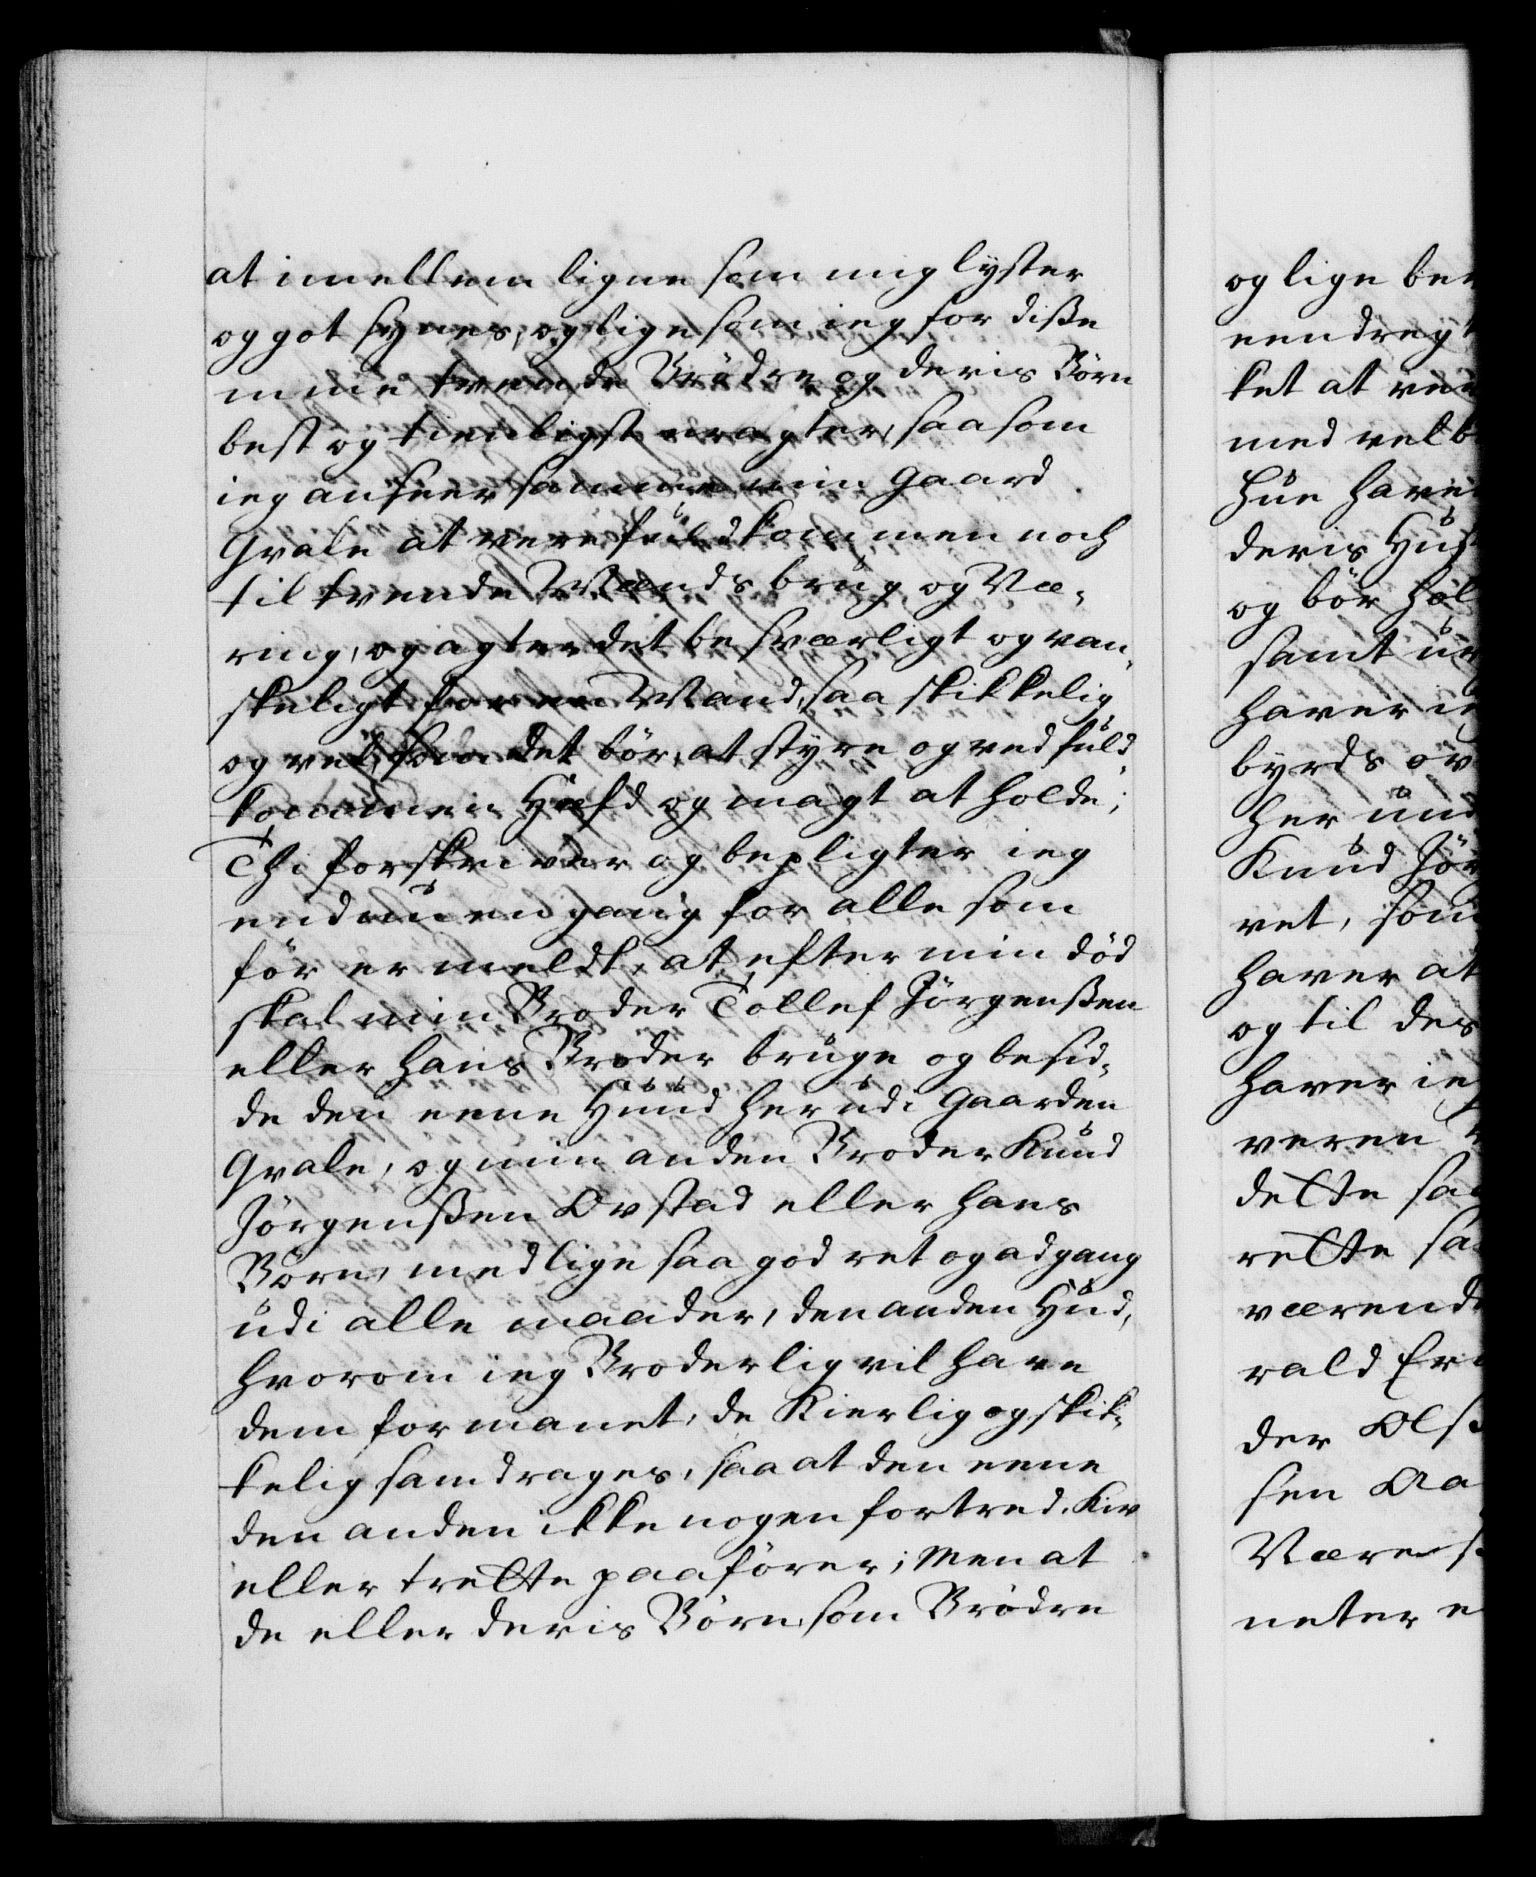 at imellem ligne som mig lyster
og got synes, og lige som ieg for diße
mine tvende Brödre og deris Börn
best og tienligst eragter, saasom
ieg anseer samme min gaard
Qvale at vere fuldkommen noch
til tvende Mænds brug og Næ-
ring, og agter det besværligt og van-
skeligt for en Mand, saa skikkelig
og vel, som det bör, at styre og ved fuld-
kommen Hæfd og magt at holde;
Thi forskriver og bepligter ieg
end nu en gang for alle som
för er meldt, at efter min död
skal min Broder Tollef Jörgenßen
eller hans Broder bruge og besid-
de den eene Huud her udi Gaarden
Qvale, og min anden Broder Knud
Jörgenßen Ovstad eller hans
Börn, med lige saa god ret og adgang
udi alle maader, den anden Hud,
hvorom ieg Broderlig vil have
dem formanet, de Kierlig og skik-
kelig samdrages, saa at den eene
den anden ikke nogen fortred, Kiv
eller trette paaförer; Men at
de eller deris Börn, som Brödre
og lige
eendreg
ket at
med velb
hun
deris
og bör
samt
haver
byrds
her
Knud Jör
ret, som
haver at
og til des
haver ieg
veren
dette saa
rette
værende
vald
der Olß
sen Aa
Være
neter